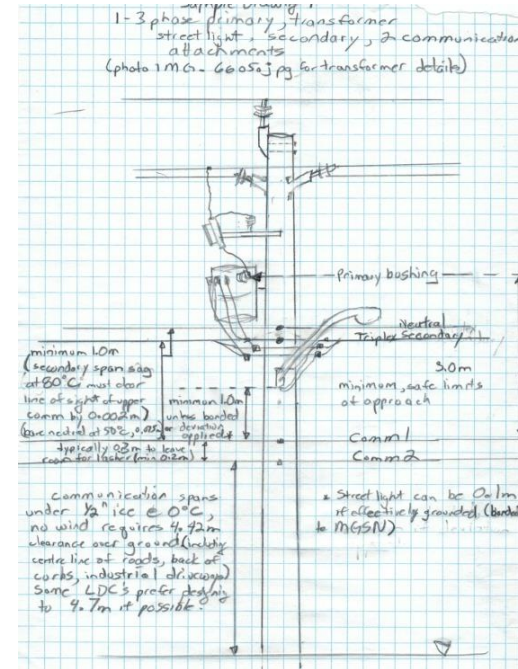 Sample Drawing 1
1-3 phase primary, transformer
street light, secondary, 2 communication
attachments
(photo IMG-6605.jpg for transformer details)
Primary bushing
Neutral
Triplex Secondary
minimum 1.0m
(secondary span sag
at 80°C must clear
line of sight of upper
comm by 0.002m)
(bare neutral at 50°C,
minimum 1.0m
unless bonded
or deviation
applied
3.0m
minimum, safe limits
of approach
typically 0.3m to leave
room for lasher (min 0.2m)
Comm1
Comm2
communication spans
under 1/2" ice @ 0°C,
no wind requires 4.42m
clearance over ground (including
centre line of roads, back of
curbs, industrial driveways)
Some LDC's prefer designing
to 4.7m if possible.
* Street light can be 0.1m
if effectively grounded (bonded
to MGSN)